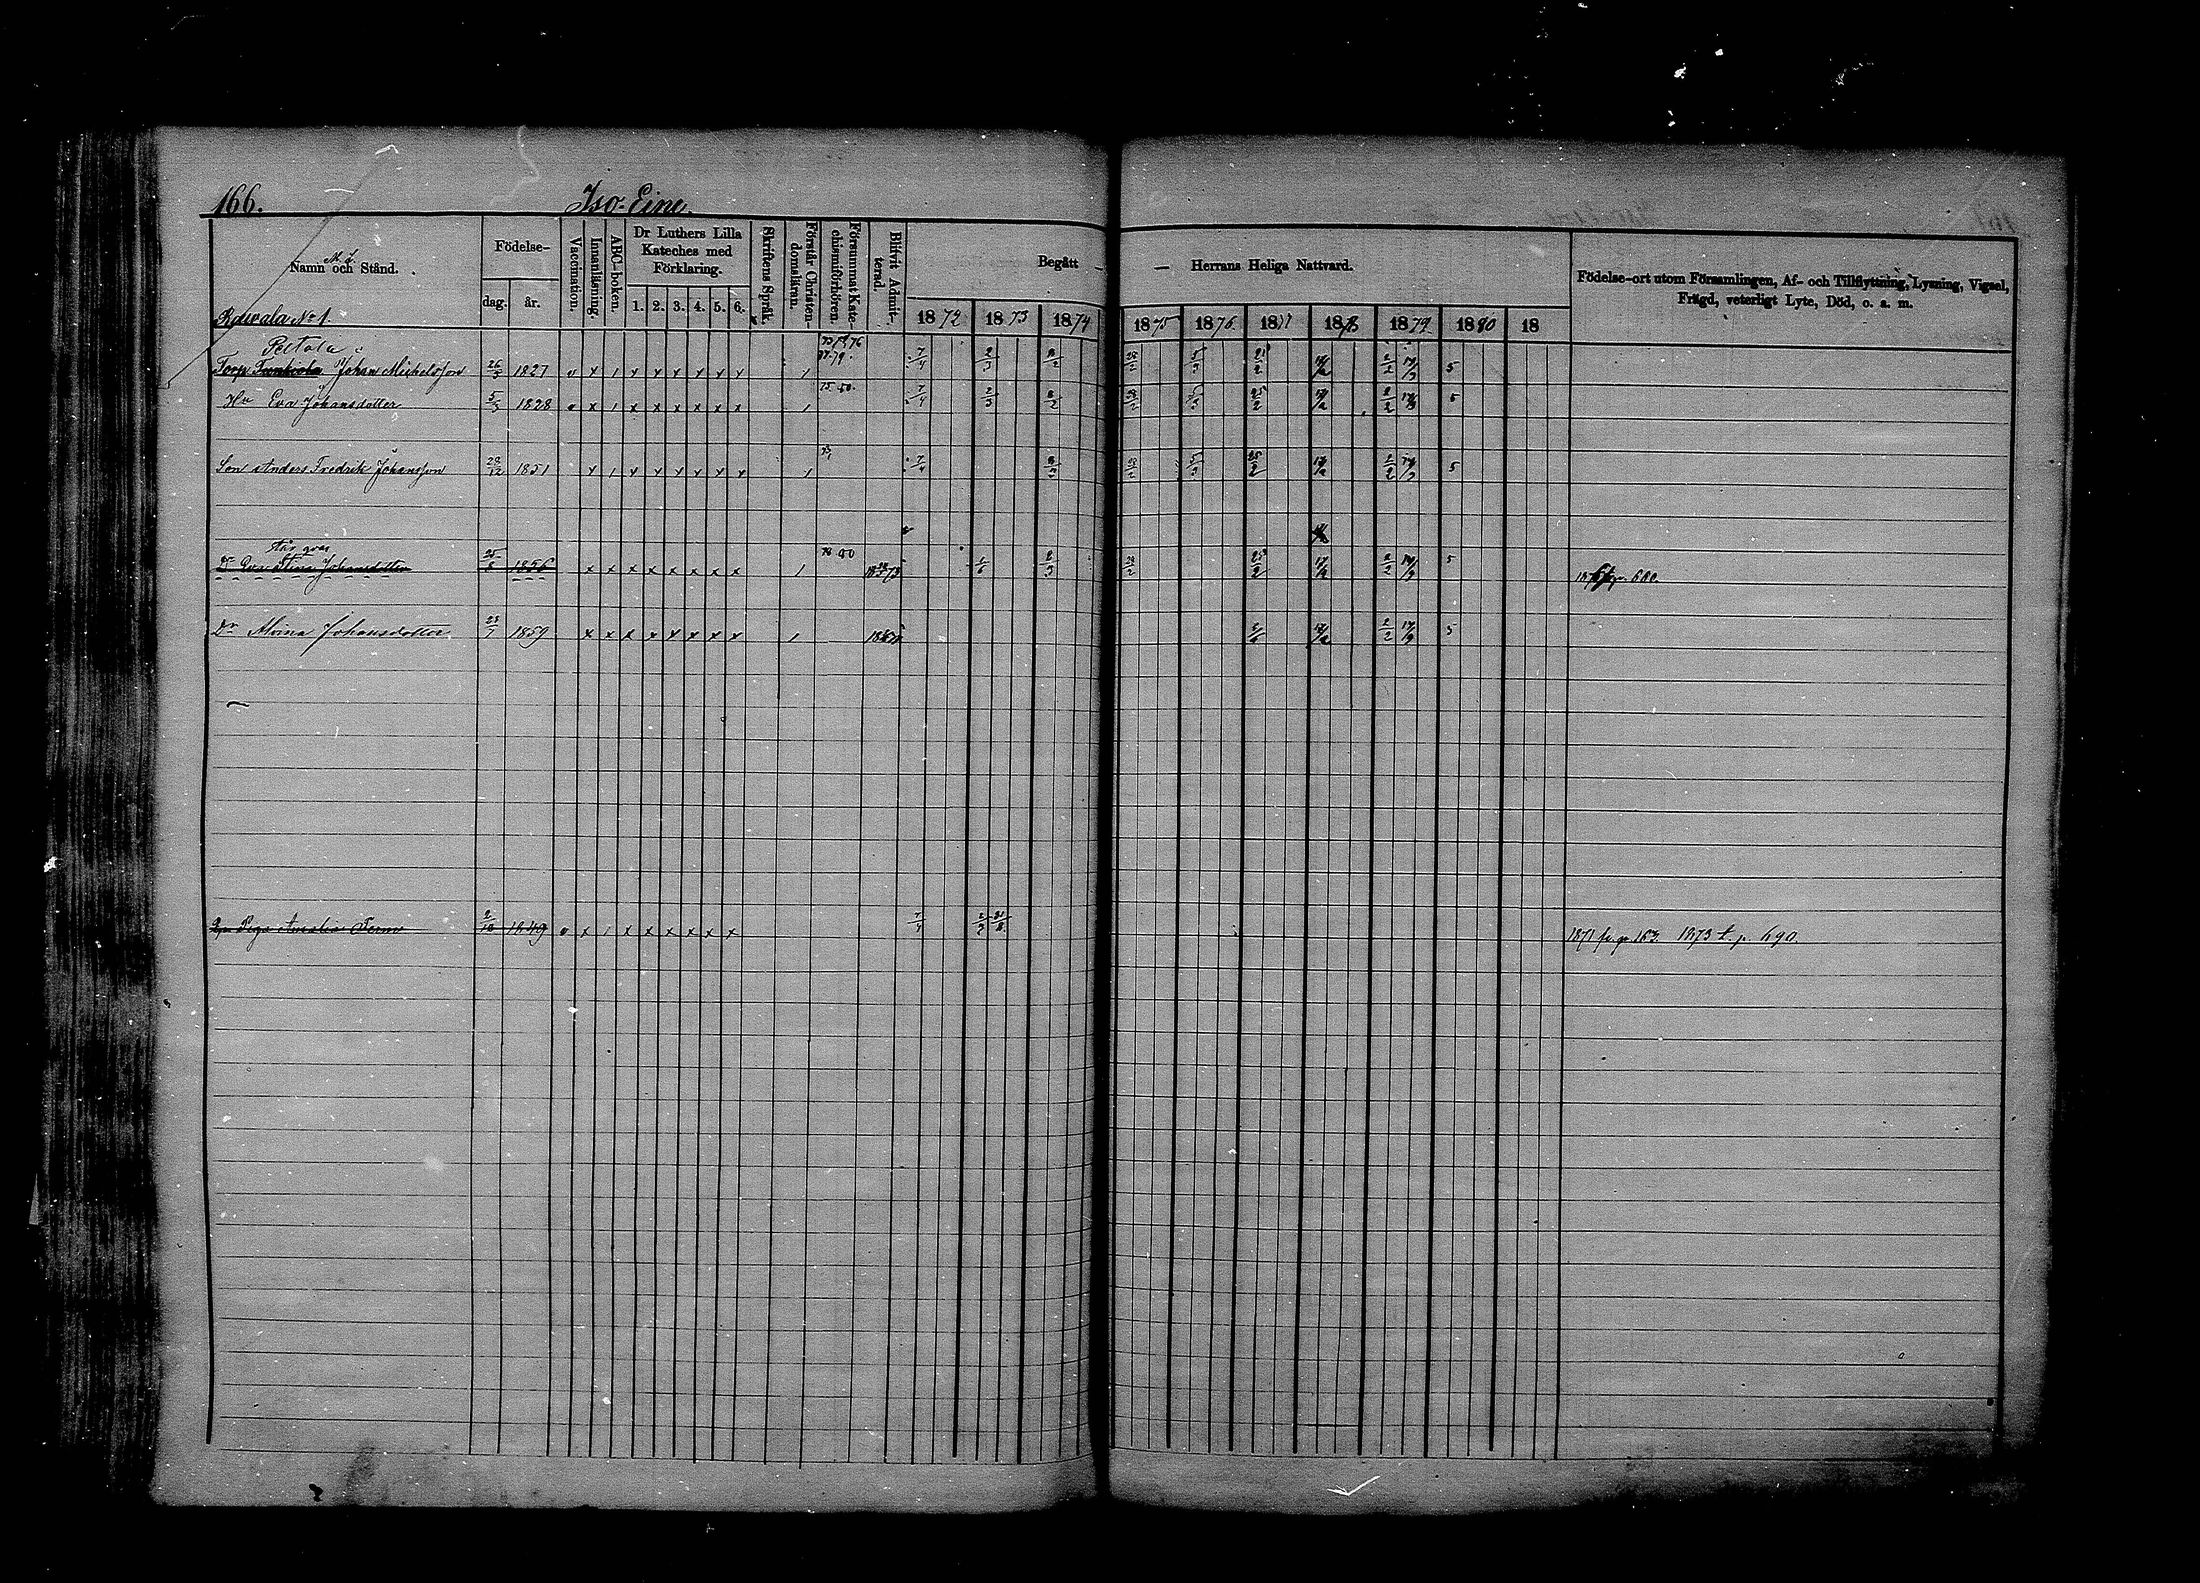 166. Iso-Eine.
Namn och Stånd. Födelse- Vaccination. Innanläsning. ABC-boken. Dr Luthers Lilla Kateches med Förklaring. Skriftens Språk. Förstår Christendomsläran. Försummat Katechismiförhören. Blifvit Admitterad. Begått — — Herrans Heliga Nattvard. Födelse-ort utom Församlingen, Af- och Tillflyttning, Lysning, Vigsel, Frägd, veterligt Lyte, Död, o. a. m.
dag. år. 1. 2. 3. 4. 5. 6. 1872 1873 1874 1875 1876 1877 1878 1879 1880 18
No 1.
Peltola
Torp Johan Michelsson 26/3 1827 v x 1 x x x x x x 1 7/4 2/3 2/2 28/2 5/3 25/2 17/2 2/2 17/3 5
Hu Eva Johansdotter 5/5 1828 v x 1 x x x x x x 1 7/4 2/3 2/2 28/2 5/3 25/2 17/2 2/2 17/3 5
Son Anders Fredrik Johansson 29/12 1851 x 1 x x x x x x 1 7/4 2/2 28/2 5/3 25/2 17/2 2/2 17/3 5
Dr Eva Stina Johansdotter 25/8 1856 x x x x x x x x 1 1873 1/6 2/3 28/2 25/2 17/2 2/2 17/3 5
Dr Alvina Johansdotter 1859 x x x x x x x x 1 17/2 2/2 17/3 5
Piga Amalia 1849 v x 1 x x x x x x 7/4 2/3 1871 fr. p. 163. 1873 t. p. 690.